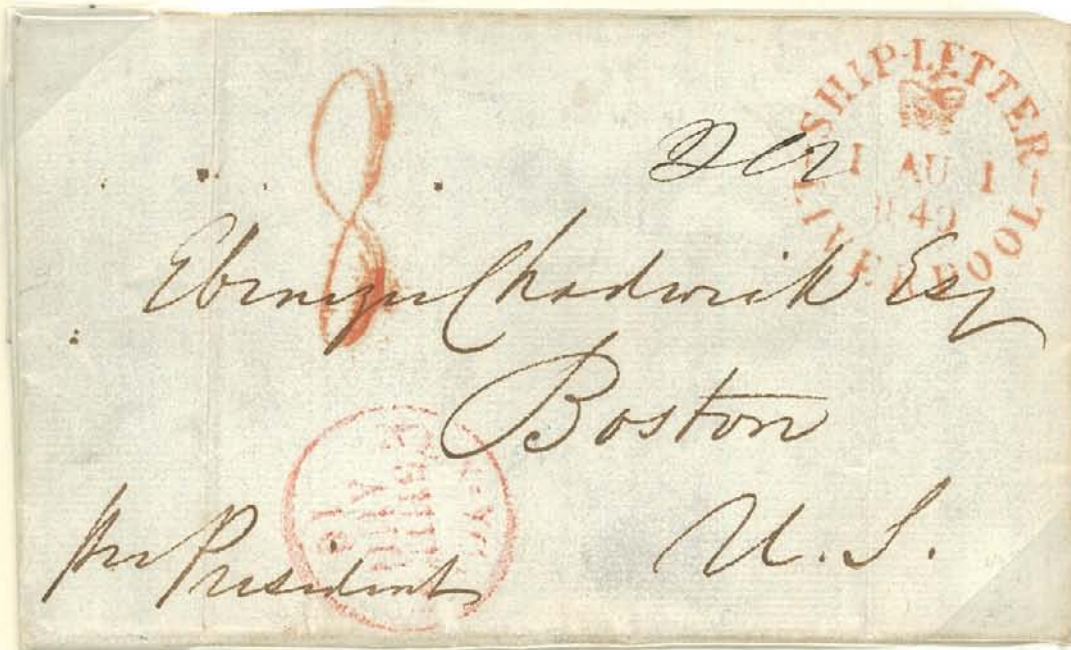 SHIP-LETTER-LIVERPOOL
1 AU 1
1840
8
Ebenezer Chadwick Esq
Boston
U. S.
per President